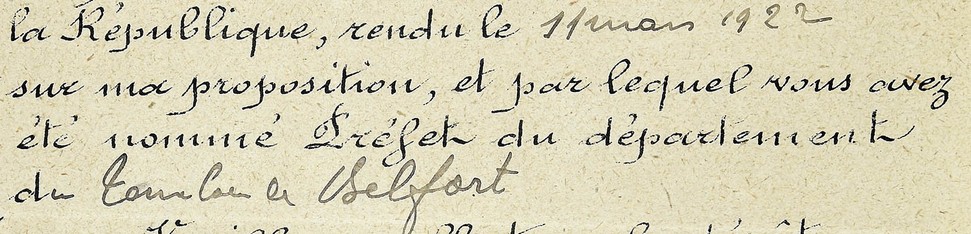 la République, rendu le 11 mars 1922
sur ma proposition, et par lequel vous avez
été nommé Préfet du département
du Territoire de Belfort